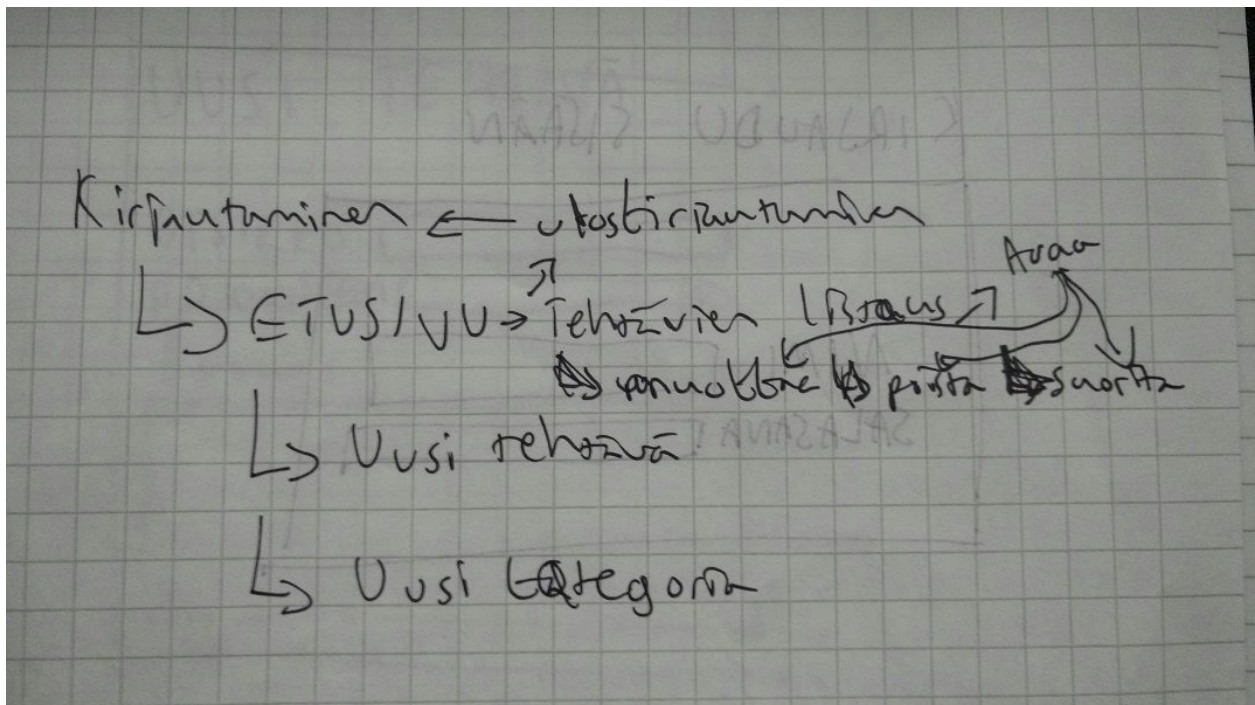 Kirjautuminen ← uloskirjautuminen
Avaa
↳ ETUSIVU → Tehtävien listaus ↗
muokkaa poista suorita
↳ Uusi tehtävä
↳ Uusi kategoria